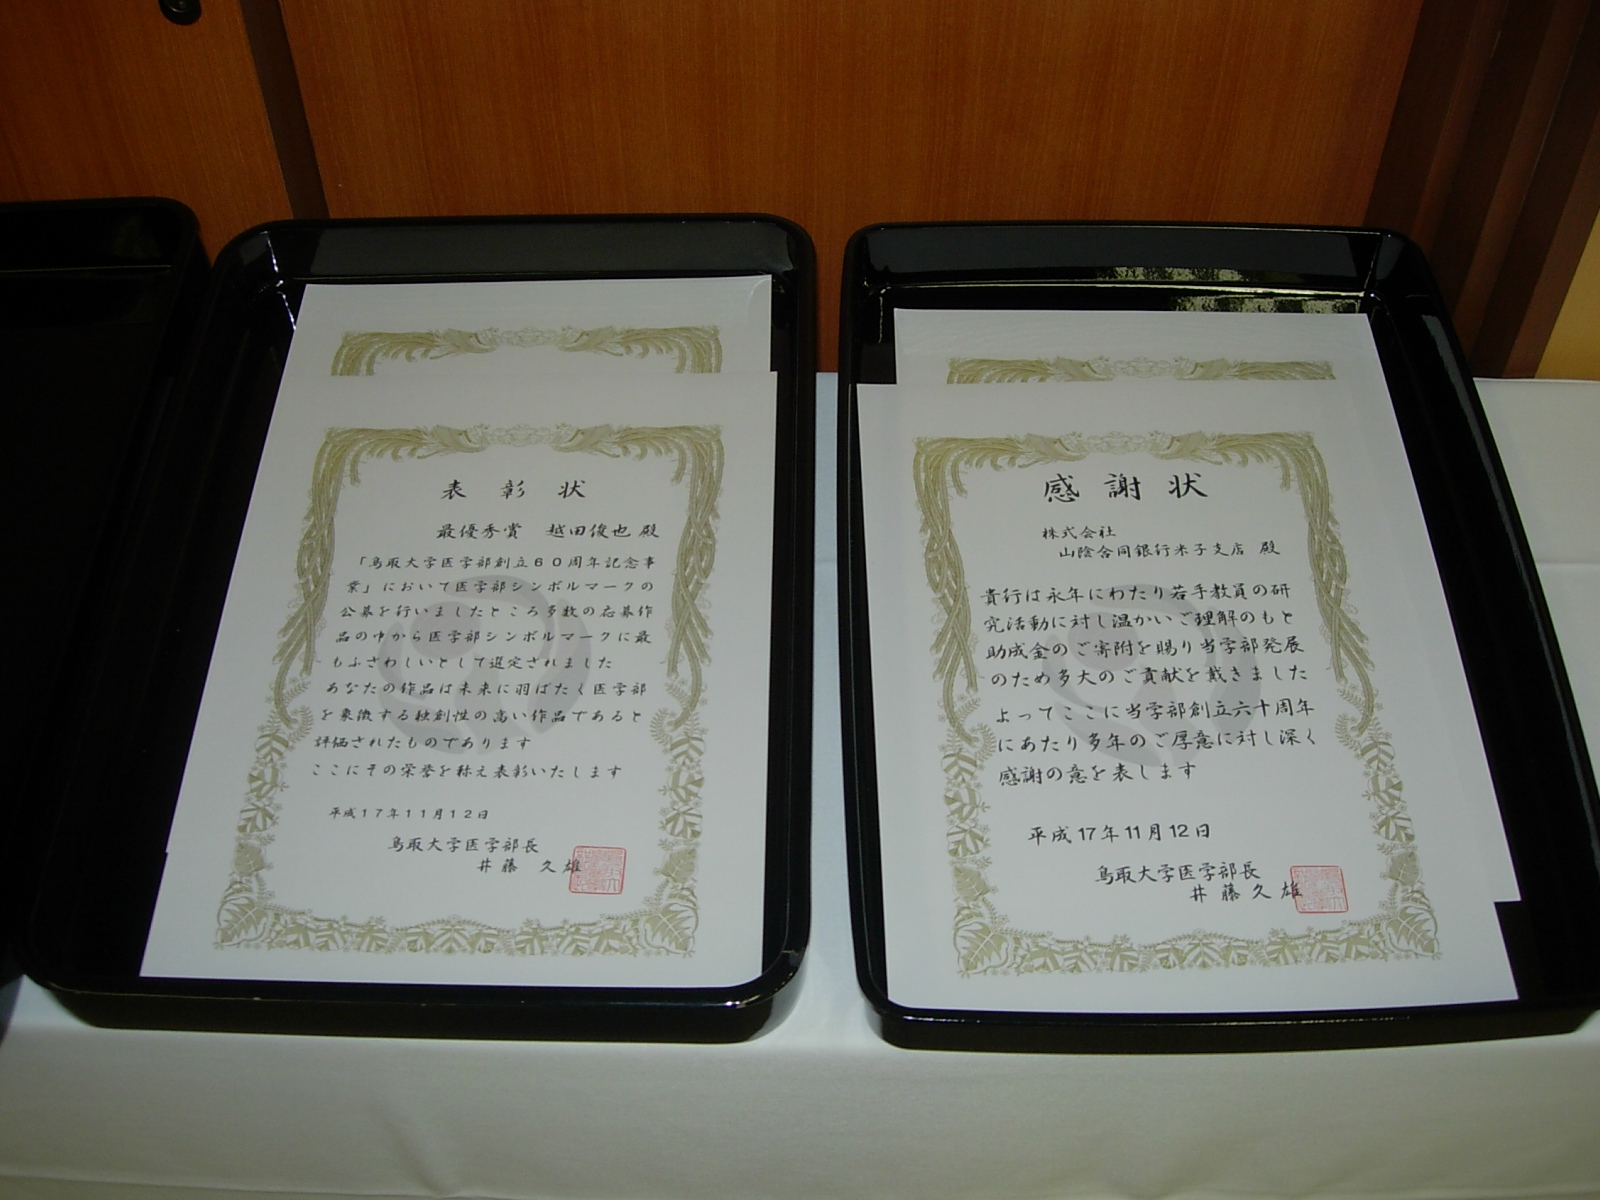 表彰状
最優秀賞 越田俊也 殿
「鳥取大学医学部創立60周年記念事
業」において医学部シンボルマークの
公募を行いましたところ多数の応募作
品の中から医学部シンボルマークに最
もふさわしいとして選定されました
あなたの作品は未来に羽ばたく医学部
を象徴する独創性の高い作品であると
評価されたものであります
ここにその栄誉を称え表彰いたします
平成17年11月12日
鳥取大学医学部長
井藤 久雄
感謝状
株式会社
山陰合同銀行米子支店 殿
貴行は永年にわたり若手教員の研
究活動に対し温かいご理解のもと
助成金のご寄附を賜り当学部発展
のため多大のご貢献を戴きました
よってここに当学部創立六十周年
にあたり多年のご厚意に対し深く
感謝の意を表します
平成17年11月12日
鳥取大学医学部長
井藤久雄